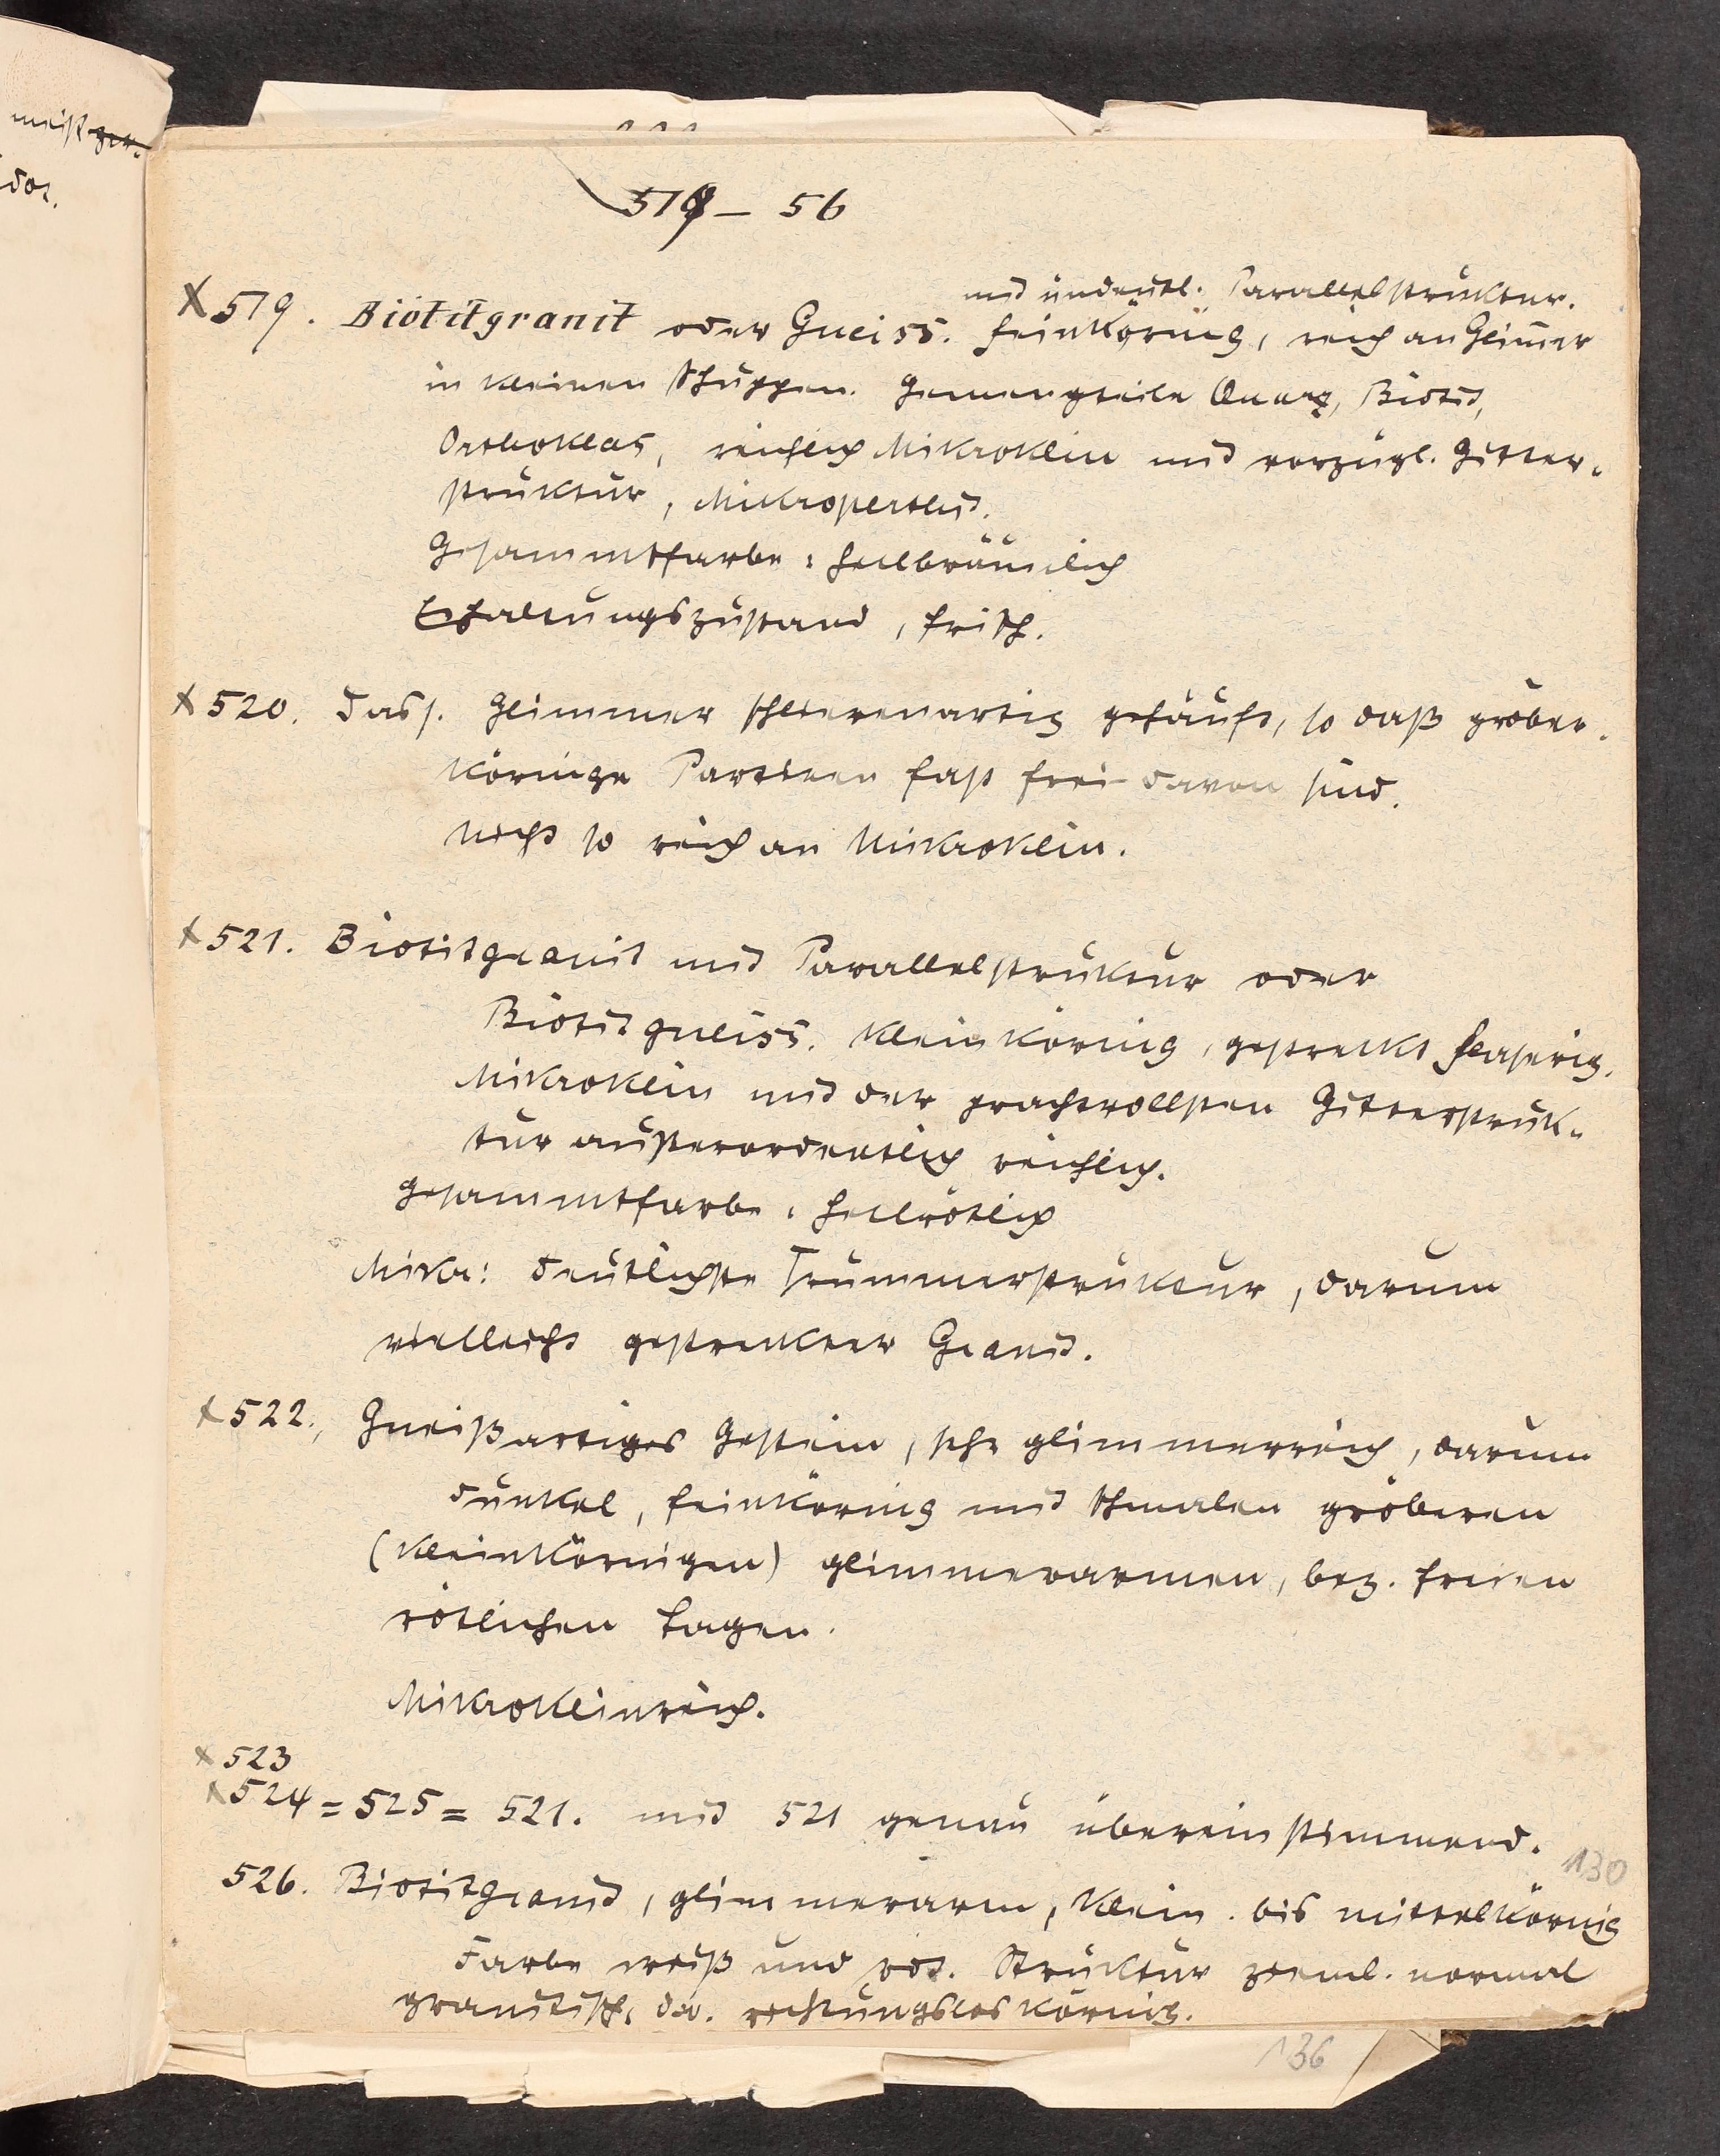 meist ger.
dos.
519 – 56
mit undeutl. Parallelstruktur.
X 519. Biotitgranit oder Gneiss. feinkörnig, reich an Glimer
in kleinen Schuppen. Gemengteile Quarz, Biotit,
Orthoklas, reichlich Mikroklin mit vorzügl. Gitter-
struktur, Mikroperthit.
Gesammtfarbe: hellbräunlich
Erhaltungszustand, frisch.
x 520. Dass. Glimmer schlierenartig gehäuft, so daß gröber-
körnige Partieen fast frei davon sind.
Nicht so reich an Mikroklin.
x 521. Biotitgranit mit Parallelstruktur oder
Biotitgneiss. Kleinkörnig, gestreckt flaserig.
Mikroklin mit der prachtvollsten Gitterstruk-
tur außerordentlich reichlich.
Gesammtfarbe: hellrötlich
Mikr: Deutlichste Trümmerstruktur, darum
vielleicht gestreckter Granit.
x 522. Gneißartiges Gestein, sehr glimmerreich, darum
dunkel, feinkörnig mit schmalen gröberen
(kleinkörnigen) glimmerarmen, bez. freien
rötlichen Lagen.
Mikroklinreich.
x 523
x 524 = 525 = 521. mit 521 genau übereinstimmend.
130
526. Biotitgranit, glimmerarm, klein- bis mittelkörnig
Farbe weiß und rot. Struktur zieml. normal
granitisch, da. richtungslos körnig.
136